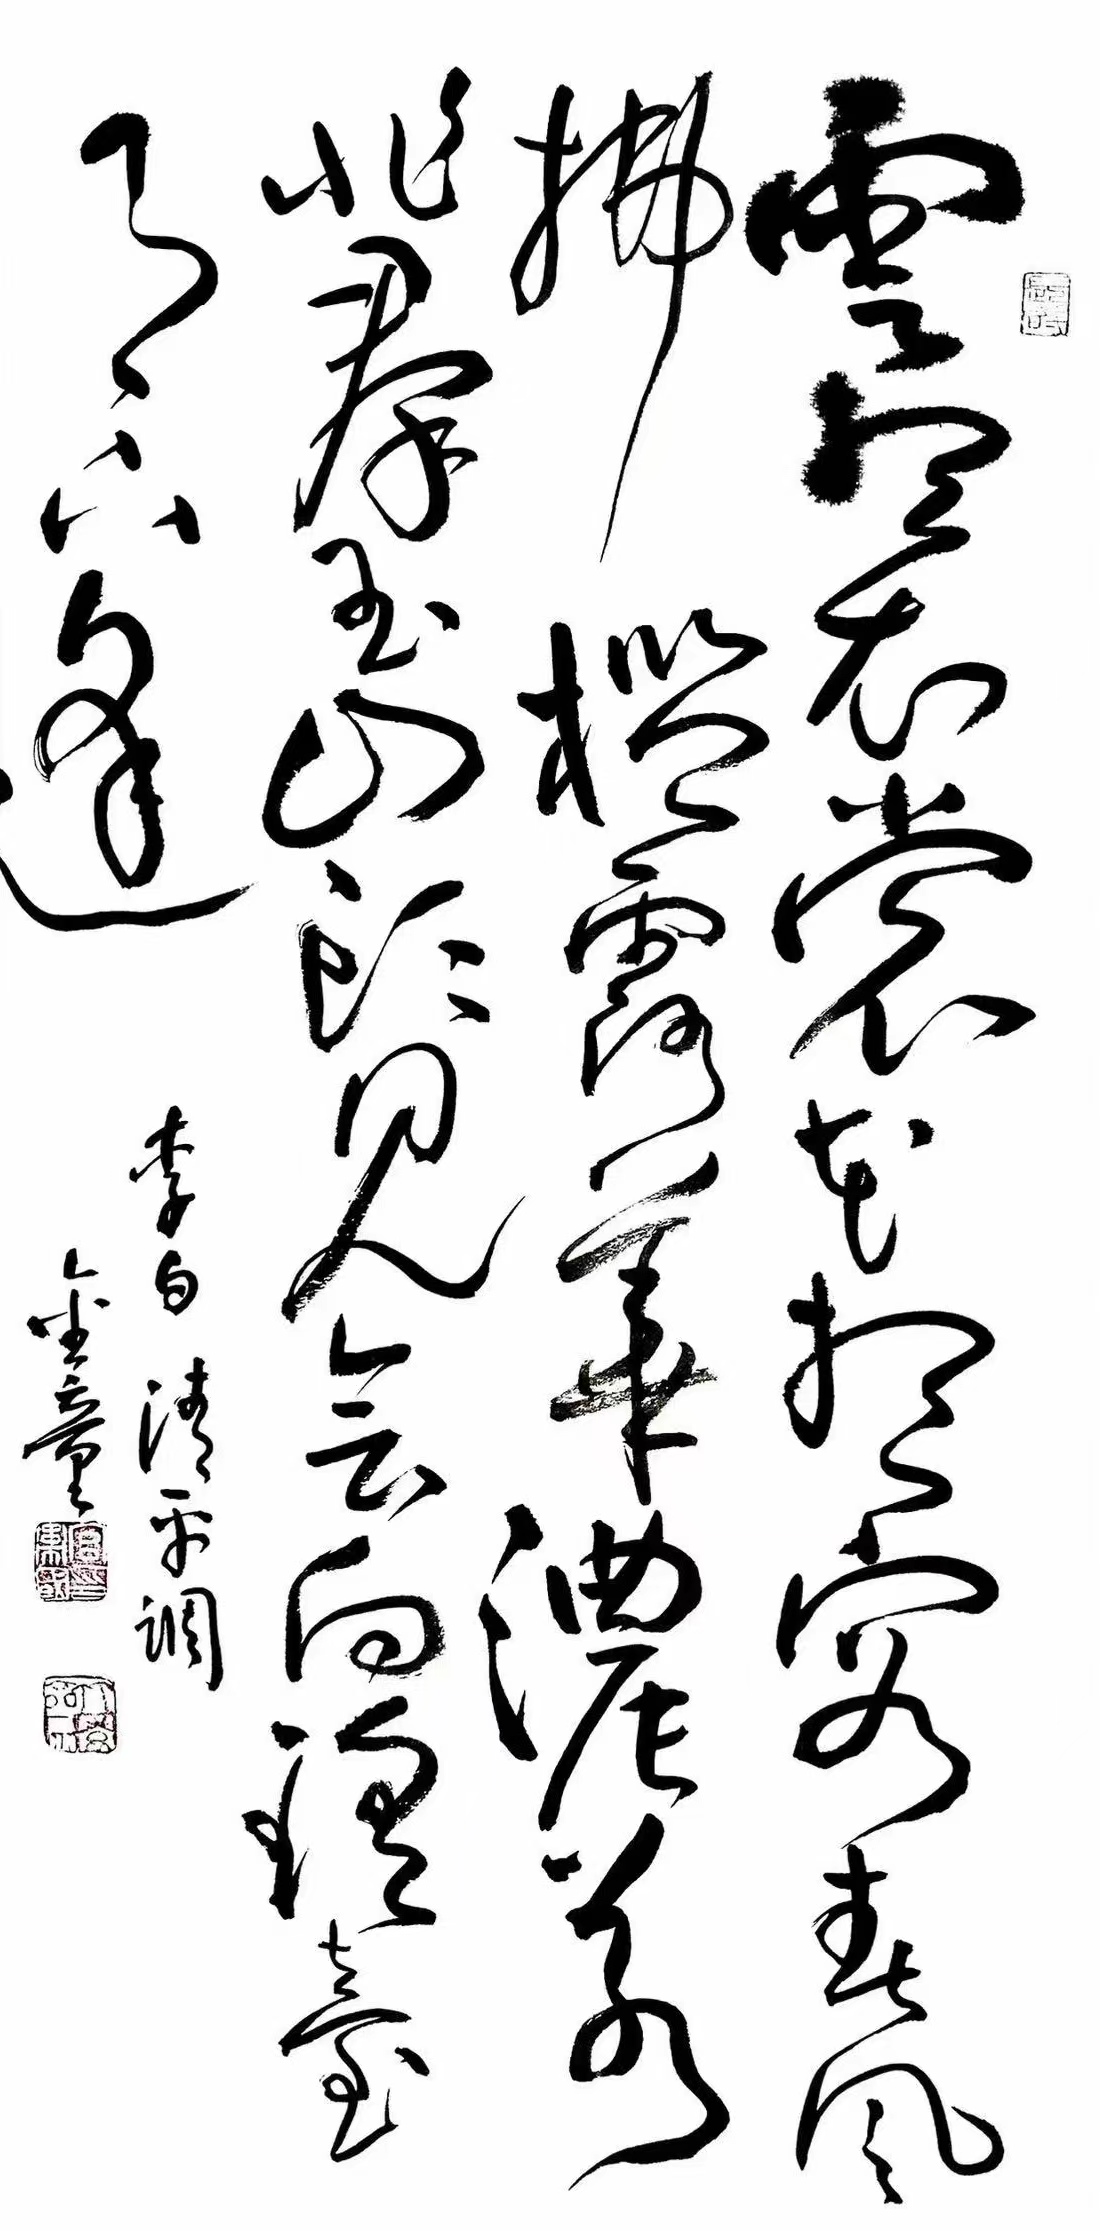 雲想衣裳花想容春風
拂檻露華濃若
非羣玉山頭見会向瑤臺
月下逢
李白 清平調
金童